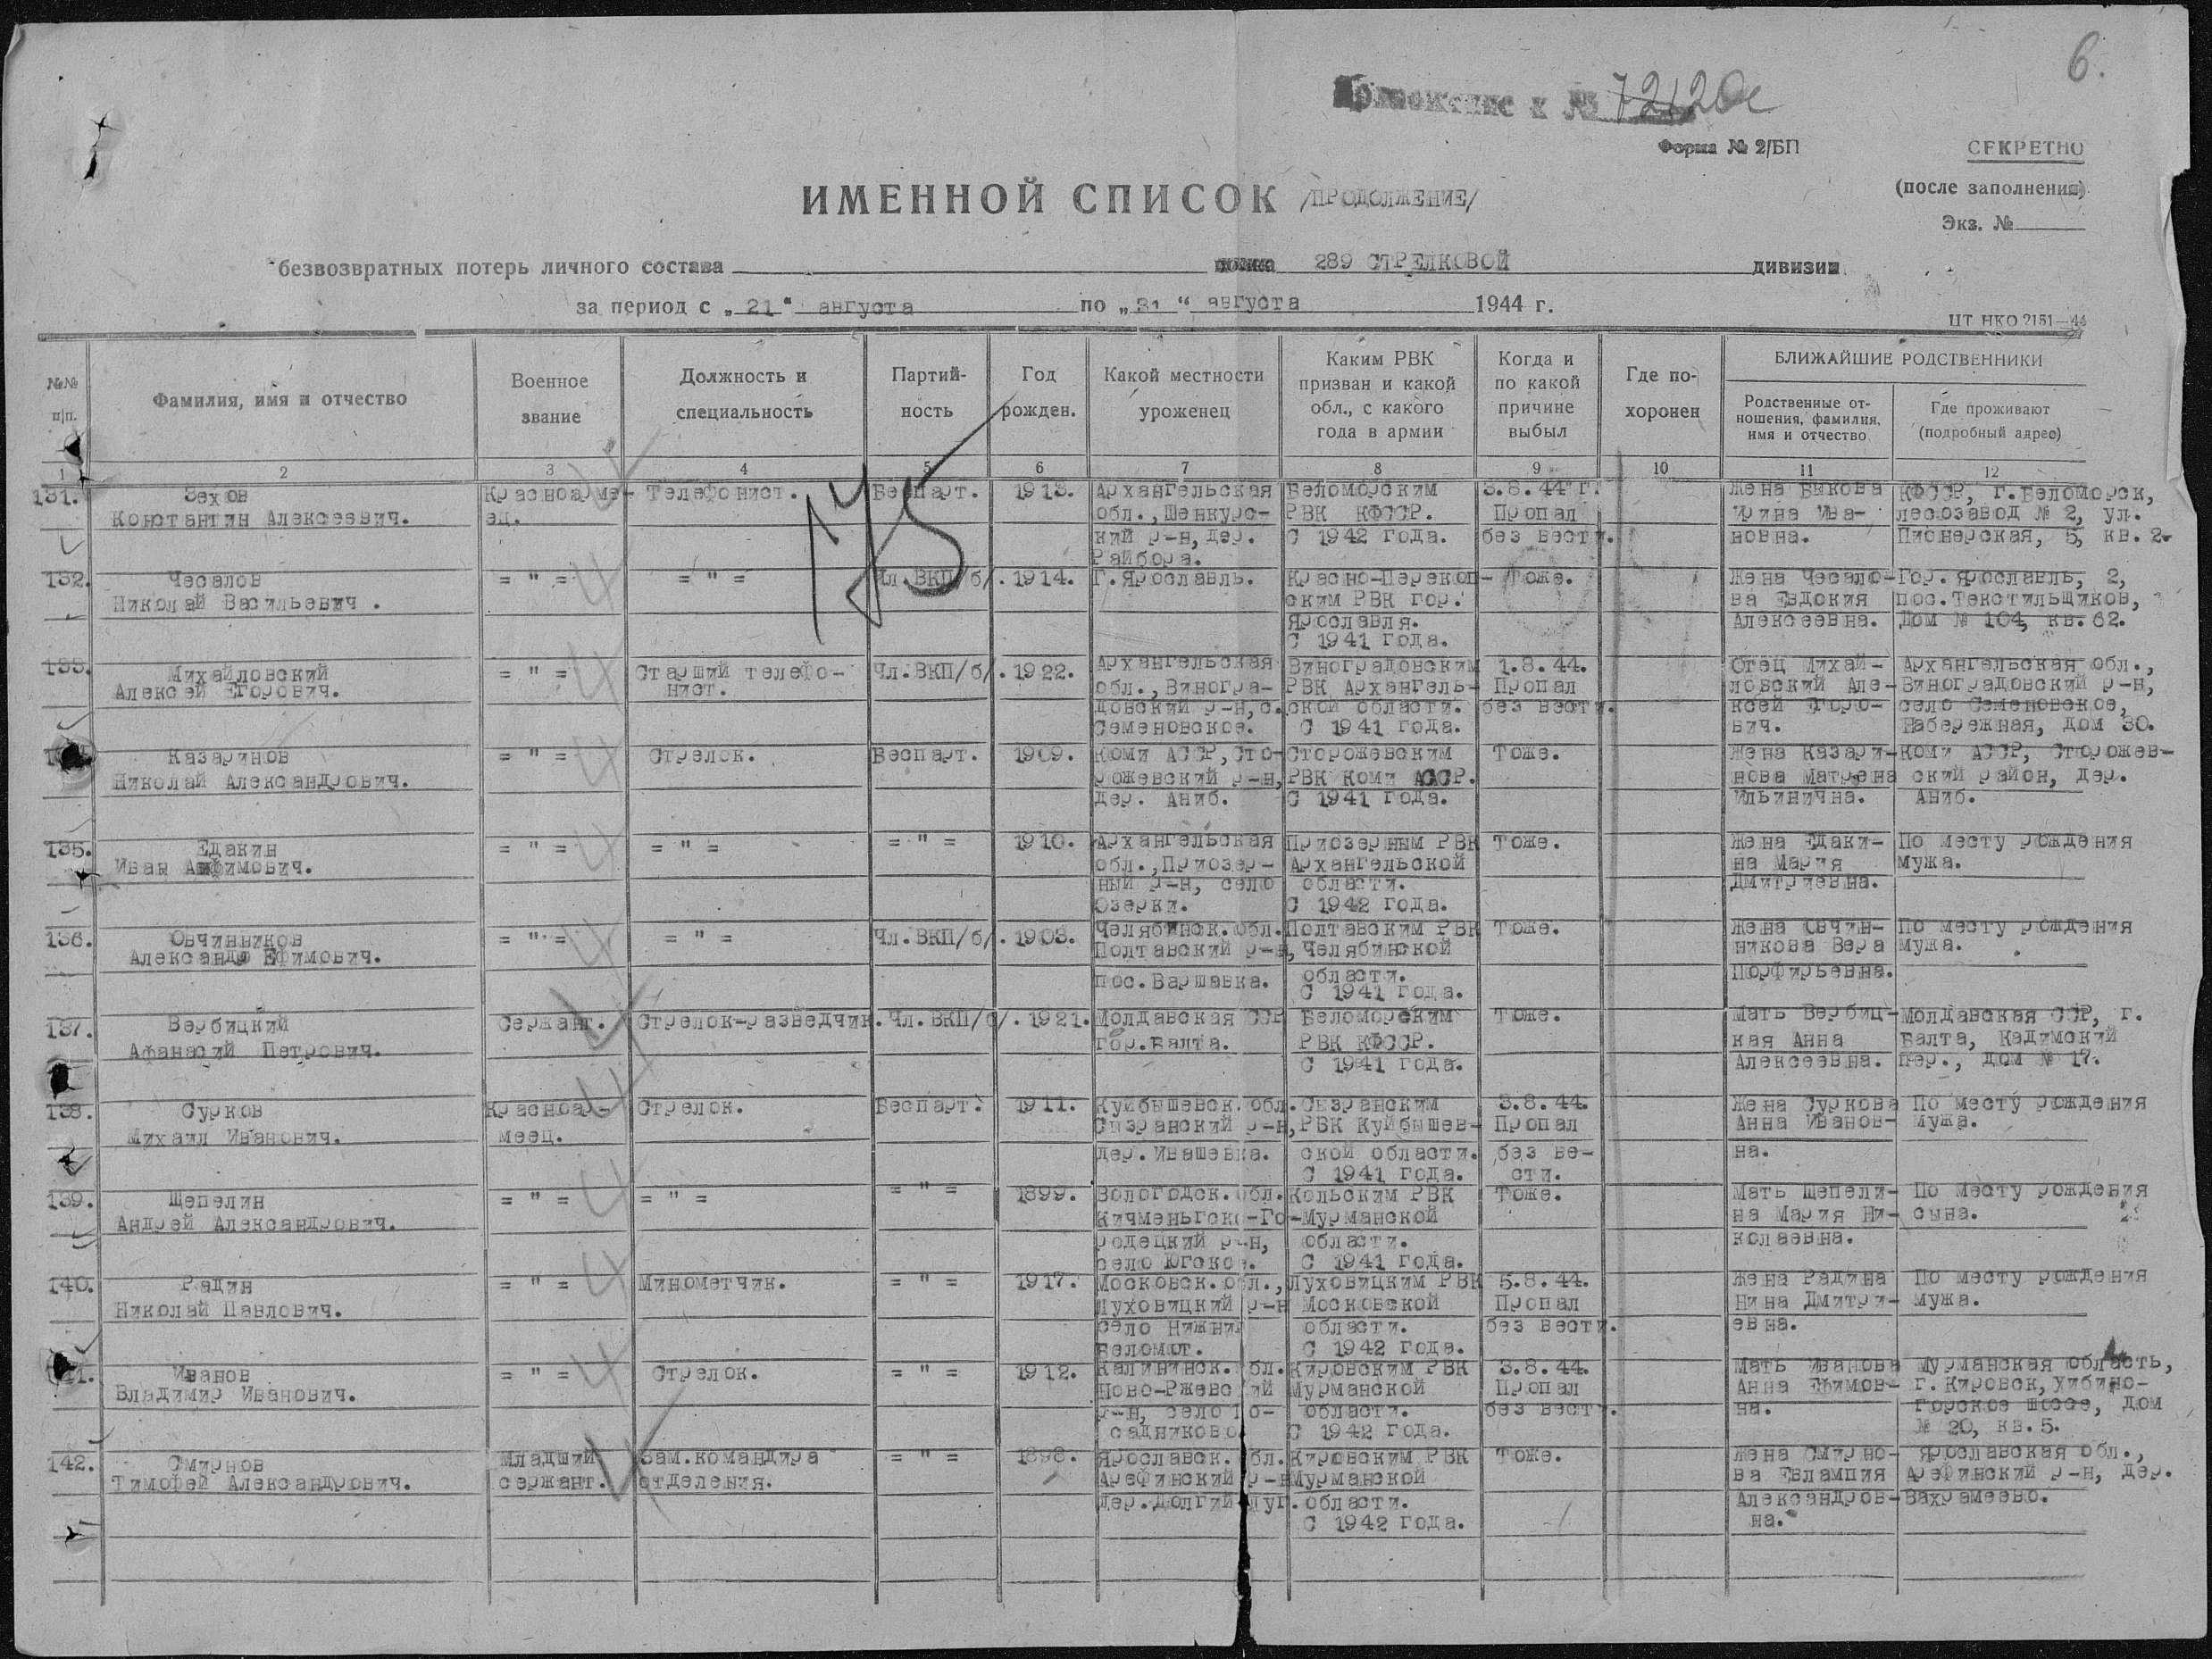 6.
Приложение к № 72120с
Форма № 2/БП
СЕКРЕТНО
(после заполнения)
Экз. №
ИМЕННОЙ СПИСОК /ПРОДОЛЖЕНИЕ/
безвозвратных потерь личного состава 289 СТРЕЛКОВОЙ дивизии
за период с „21“ августа по „31“ августа 1944 г.
ЦТ НКО 2151—44
№№ п/п.
Фамилия, имя и отчество
Военное звание
Должность и специальность
Партий-ность
Год рожден.
Какой местности уроженец
Каким РВК призван и какой обл., с какого года в армии
Когда и по какой причине выбыл
Где по-хоронен
БЛИЖАЙШИЕ РОДСТВЕННИКИ
Родственные от-ношения, фамилия, имя и отчество
Где проживают (подробный адрес)
1 2 3 4 5 6 7 8 9 10 11 12
175
131. Зехов Красноарме- Телефонист. Беспарт. 1913. Архангельская Беломорским 3.8.44 г. Жена Быкова КФССР, г.Беломорск,
Константин Алексеевич. ец. обл.,Шенкурс- РВК КФССР. Пропал Ирина Ива- лесозавод № 2, ул.
кий р-н, дер. С 1942 года. без вести. новна. Пионерская, 5, кв. 2.
Райбора.
132. Чесалов = " = = " = Чл.ВКП/б/. 1914. Г.Ярославль. Красно-Перекоп- Тоже. Жена Чесало- Гор. Ярославль, 2,
Николай Васильевич . ским РВК гор. ва Евдокия пос.Текстильщиков,
Ярославля. Алексеевна. Дом № 104, кв. 62.
С 1941 года.
133. Михайловский = " = Старший телефо- Чл.ВКП/б/. 1922. Архангельская Виноградовским 1.8.44. Отец Михай- Архангельская обл.,
Алексей Егорович. нист. обл.,Виногра- РВК Архангель- Пропал ловский Але- Виноградовский р-н,
довский р-н,с. ской области. без вести. ксей Егоро- село Семеновское,
Семеновское. С 1941 года. вич. Набережная, дом 30.
Казаринов = " = Стрелок. Беспарт. 1909. Коми АССР,Сто- Сторожевским Тоже. Жена Казари- Коми АССР, Сторожев-
Николай Александрович. рожевский р-н, РВК Коми АССР. нова Матрена ский район, дер.
дер. Аниб. С 1941 года. Ильинична. Аниб.
135. Едакин = " = = " = = " = 1910. Архангельская Приозерным РВК Тоже. Жена Едаки- По месту рождения
Иван обл.,Приозер- Архангельской на Мария мужа.
ный р-н, село области. Дмитриевна.
Озерки. С 1942 года.
136. Овчинников = " = = " = Чл.ВКП/б/. 1903. Челябинск.обл. Полтавским РВК Тоже. Жена Овчин- По месту рождения
Александр Ефимович. Полтавский р-н, Челябинской никова Вера мужа.
пос.Варшавка. области. Порфирьевна.
С 1941 года.
137. Вербицкий Сержант. Стрелок-разведчик. Чл.ВКП/б/. 1921. Молдавская ССР Беломорским Тоже. Мать Вербиц- Молдавская ССР, г.
Афанасий Петрович. гор.Балта. РВК КФССР. кая Анна Балта, Кадимский
С 1941 года. Алексеевна. пер., дом № 17.
138. Сурков Красноар- Стрелок. Беспарт. 1911. Куйбышевск.обл. Сызранским 3.8.44. Жена Суркова По месту рождения
Михаил Иванович. меец. Сызранский р-н, РВК Куйбышев- Пропал Анна Иванов- мужа.
дер.Ивашевка. ской области. без ве- на.
С 1941 года. сти.
139. Щепелин = " = = " = = " = 1899. Вологодск.обл. Кольским РВК Тоже. Мать Щепели- По месту рождения
Андрей Александрович. Кичменьгско-Го- Мурманской на Мария Ни- сына.
родецкий р-н, области. колаевна.
село С 1941 года.
140. Радин = " = Минометчик. = " = 1917. Московск.обл., Луховицким РВК 5.8.44. Жена Радина По месту рождения
Николай Павлович. Луховицкий р-н Московской Пропал Нина Дмитри- мужа.
село Нижний области. без вести. евна.
Беломут. С 1942 года.
Иванов = " = Стрелок. = " = 1912. Калининск.обл. Кировским РВК 3.8.44. Мать Иванова Мурманская область,
Владимир Иванович. Ново-Ржевский Мурманской Пропал Анна Ефимов- г. Кировск, Хибино-
р-н, село По- области. без вести. на. горское шоссе, дом
садниково С 1942 года. № 20, кв.5.
142. Смирнов Младший Зам.командира = " = 1898. Ярославск.обл. Кировским РВК Тоже. Жена Смирно- Ярославская обл.,
Тимофей Александрович. сержант. отделения. Арефинский р-н Мурманской ва Евлампия Арефинский р-н, дер.
дер.Долгий Луг. области. Александров- Вахрамеево.
С 1942 года. на.